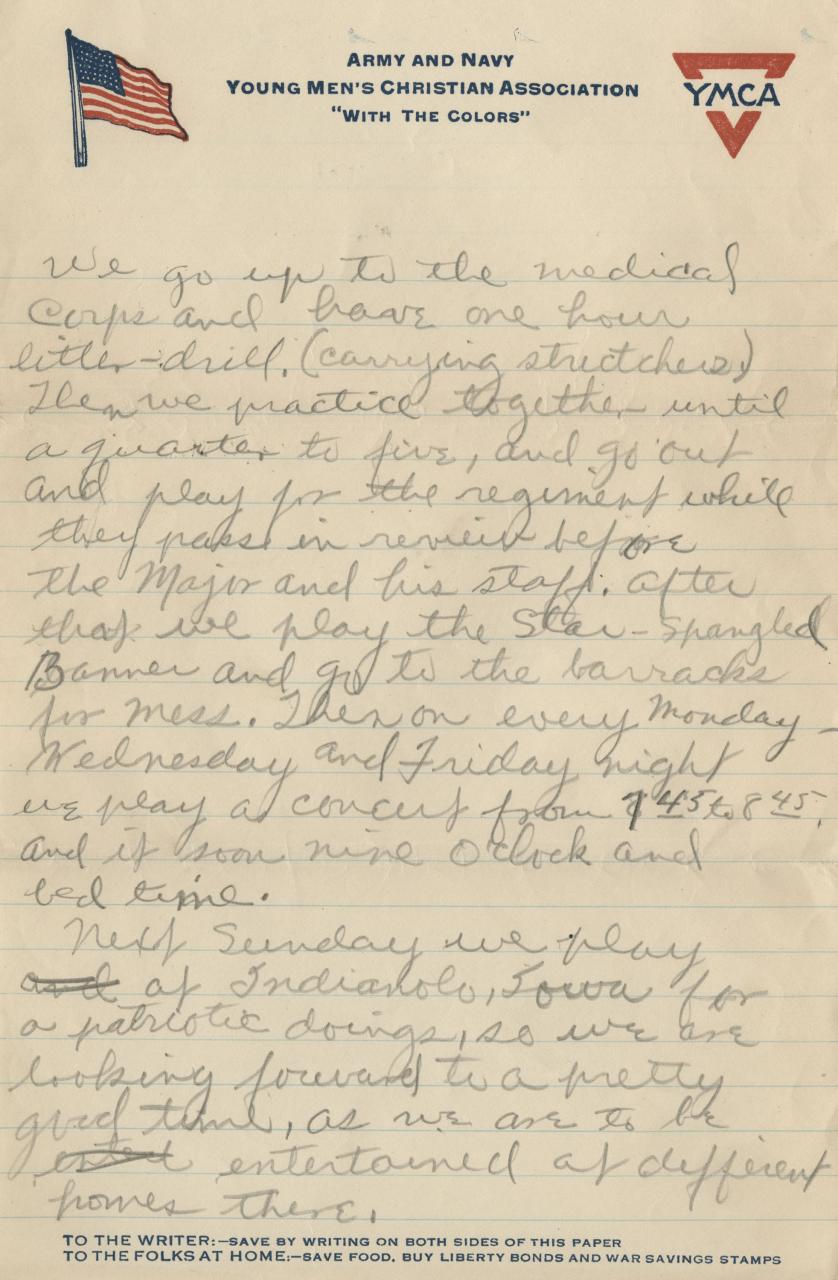 ARMY AND NAVY
YOUNG MEN'S CHRISTIAN ASSOCIATION
"WITH THE COLORS"
YMCA
We go up to the medical
Corps and have one hour
litter-drill. (carrying stretchers)
Then we practice together until
a quarter to five, and go out
and play for the regiment while
they pass in review before
the Major and his staff. After
that we play the Star-Spangled
Banner and go to the barracks
for mess. Then on every Monday-
Wednesday and Friday night
we play a concert from 7 45 to 8 45,
and it soon nine O'clock and
bed time.
Next Sunday we play
and at Indianola, Iowa for
a patriotic doings, so we are
looking forward to a pretty
good time, as we are to be
entertained at different
homes there.
TO THE WRITER:—SAVE BY WRITING ON BOTH SIDES OF THIS PAPER
TO THE FOLKS AT HOME:—SAVE FOOD, BUY LIBERTY BONDS AND WAR SAVINGS STAMPS